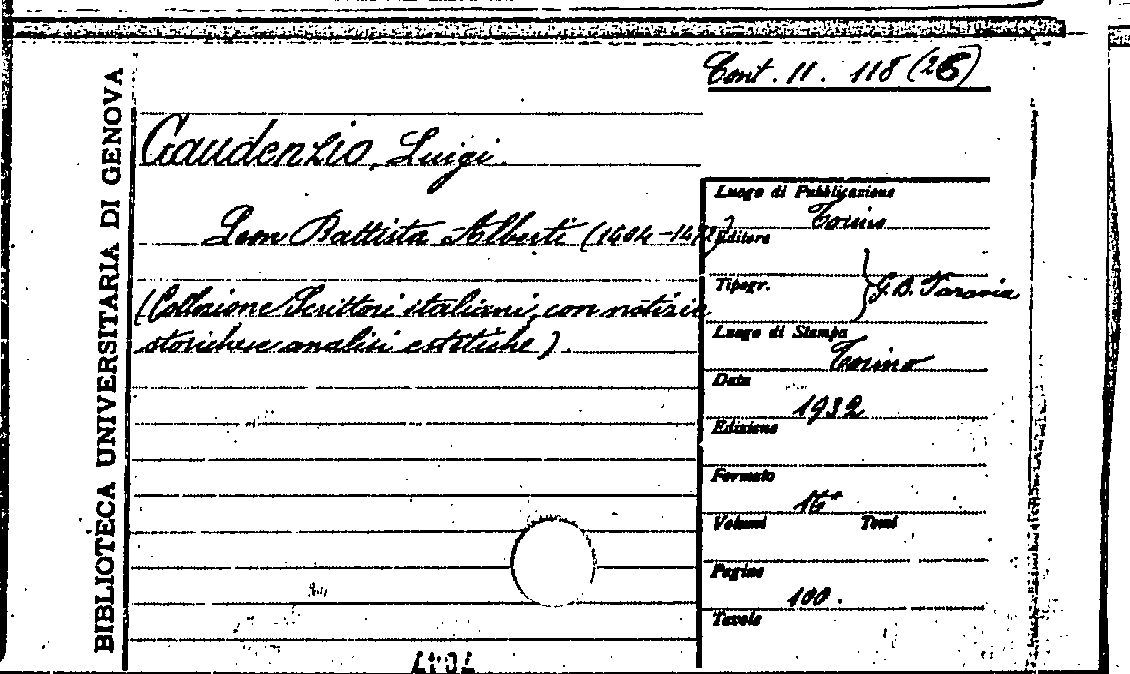 Cont. 11. 118 (26)
BIBLIOTECA UNIVERSITARIA DI GENOVA
Gaudenzio, Luigi.
Leon Battista Alberti (1404-1472)
(Collezione Scrittori italiani, con notizie
storiche e analisi estetiche).
Luogo di Pubblicazione
Torino
Editore
Tipogr.
G. B. Paravia
Luogo di Stampa
Torino
Data
1932
Edizione
Formato
16°
Volumi Tomi
Pagine
100.
Tavole